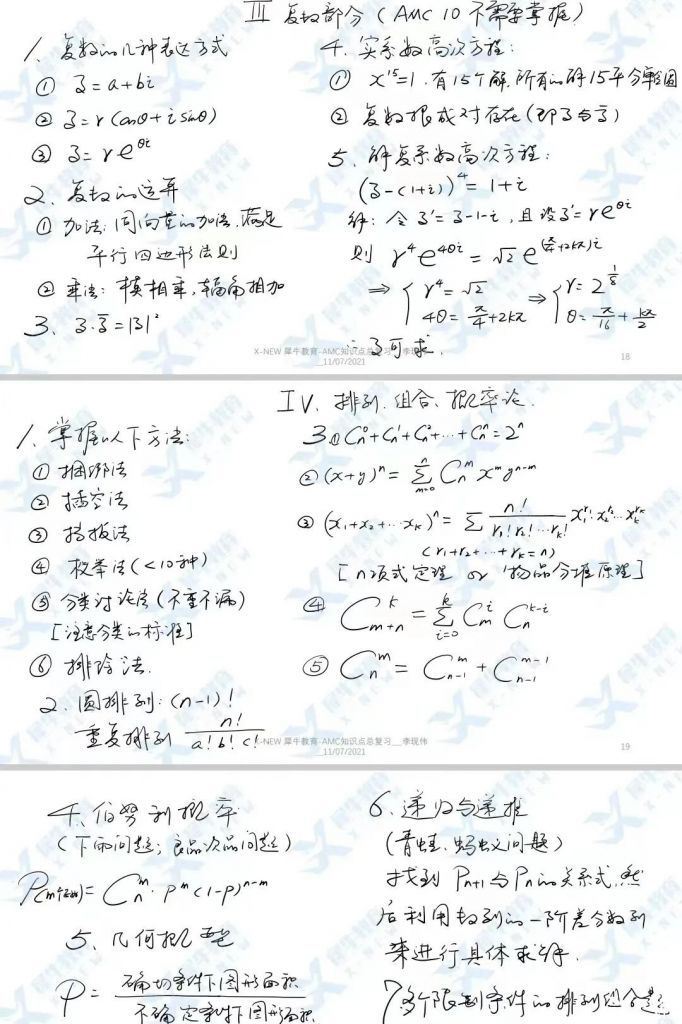 III 复数部分 (AMC 10 不需要掌握)
1、复数的几种表达方式
① z = a + bi
② z = r (cosθ + i sinθ)
③ z = r e^{θi}
2、复数的运算
① 加法: 同向量的加法, 满足
平行四边形法则
② 乘法: 模相乘, 辐角相加
3、z·z̄ = |z|²
4. 实系数高次方程:
① x^{15} = 1, 有15个解, 所有的解15平分单位圆
② 复数根成对存在 (即 z 与 z̄)
5、解复系数高次方程:
(z - (1+i))^4 = 1 + i
解: 令 z' = z - 1 - i, 且设 z' = r e^{θi}
则 r^4 e^{4θi} = √2 e^{(π/4 + 2kπ)i}
⇒ { r^4 = √2 ⇒ { r = 2^{1/8}
4θ = π/4 + 2kπ θ = π/16 + kπ/2
∴ z 可求.
X-NEW 犀牛教育-AMC知识点总复习__李现伟
__11/07/2021
18
IV、排列、组合、概率论.
1、掌握以下方法:
① 捆绑法
② 插空法
③ 挡板法
④ 枚举法 (<10种)
⑤ 分类讨论法 (不重不漏)
[注意分类的标准]
⑥ 排除法.
2. 圆排列: (n-1)!
重复排列 n! / (a! b! c!)
3 ① C_n^0 + C_n^1 + C_n^2 + ··· + C_n^n = 2^n
② (x+y)^n = Σ_{m=0}^{n} C_n^m x^m y^{n-m}
③ (x_1 + x_2 + ··· x_k)^n = Σ n! / (r_1! r_2! ··· r_k!) x_1^{r_1} · x_2^{r_2} ··· x_k^{r_k}
(r_1 + r_2 + ··· + r_k = n)
[n项式定理 or 物品分堆原理]
④ C_{m+n}^k = Σ_{i=0}^{k} C_m^i C_n^{k-i}
⑤ C_n^m = C_{n-1}^m + C_{n-1}^{m-1}
X-NEW 犀牛教育-AMC知识点总复习__李现伟
__11/07/2021
19
4、伯努利概率
(下雨问题; 良品次品问题)
= C_n^m · P^m (1-P)^{n-m}
5、几何概型
P = 确切条件下图形面积 / 不确定条件下图形面积
6、递归与递推
(青蛙、蚂蚁问题)
找到 P_{n+1} 与 P_n 的关系式, 然
后利用数列的一阶差分数列
来进行具体求解.
7 多个限制条件的排列组合题